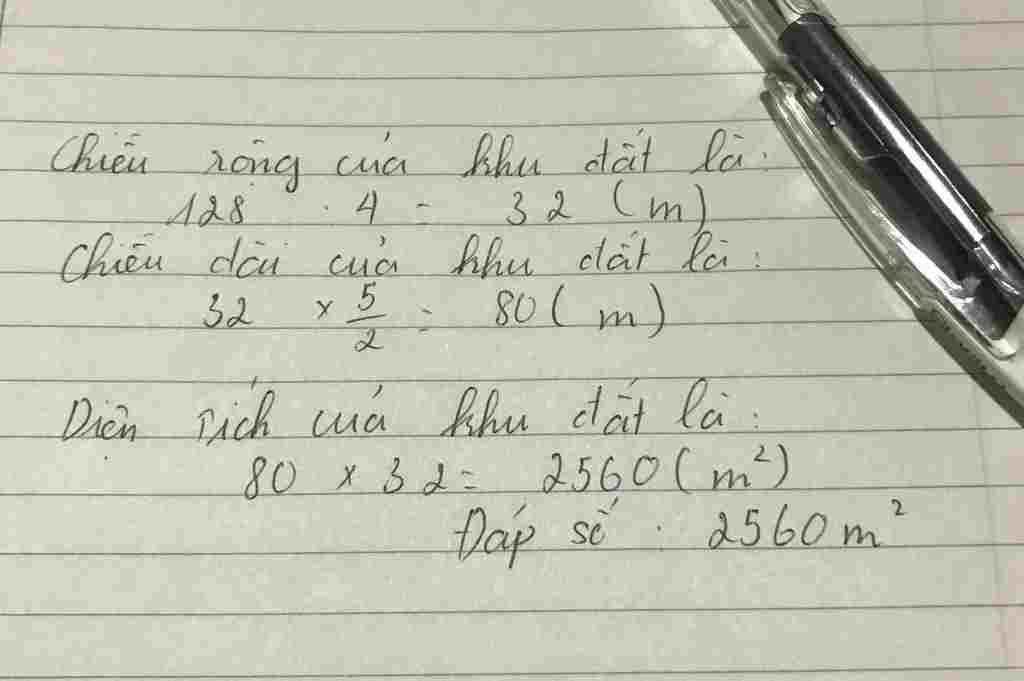 Chiều rộng của khu đất là:
128 : 4 = 32 (m)
Chiều dài của khu đất là:
32 × 5/2 = 80 (m)
Diện tích của khu đất là:
80 × 32 = 2560 (m²)
Đáp số : 2560 m²